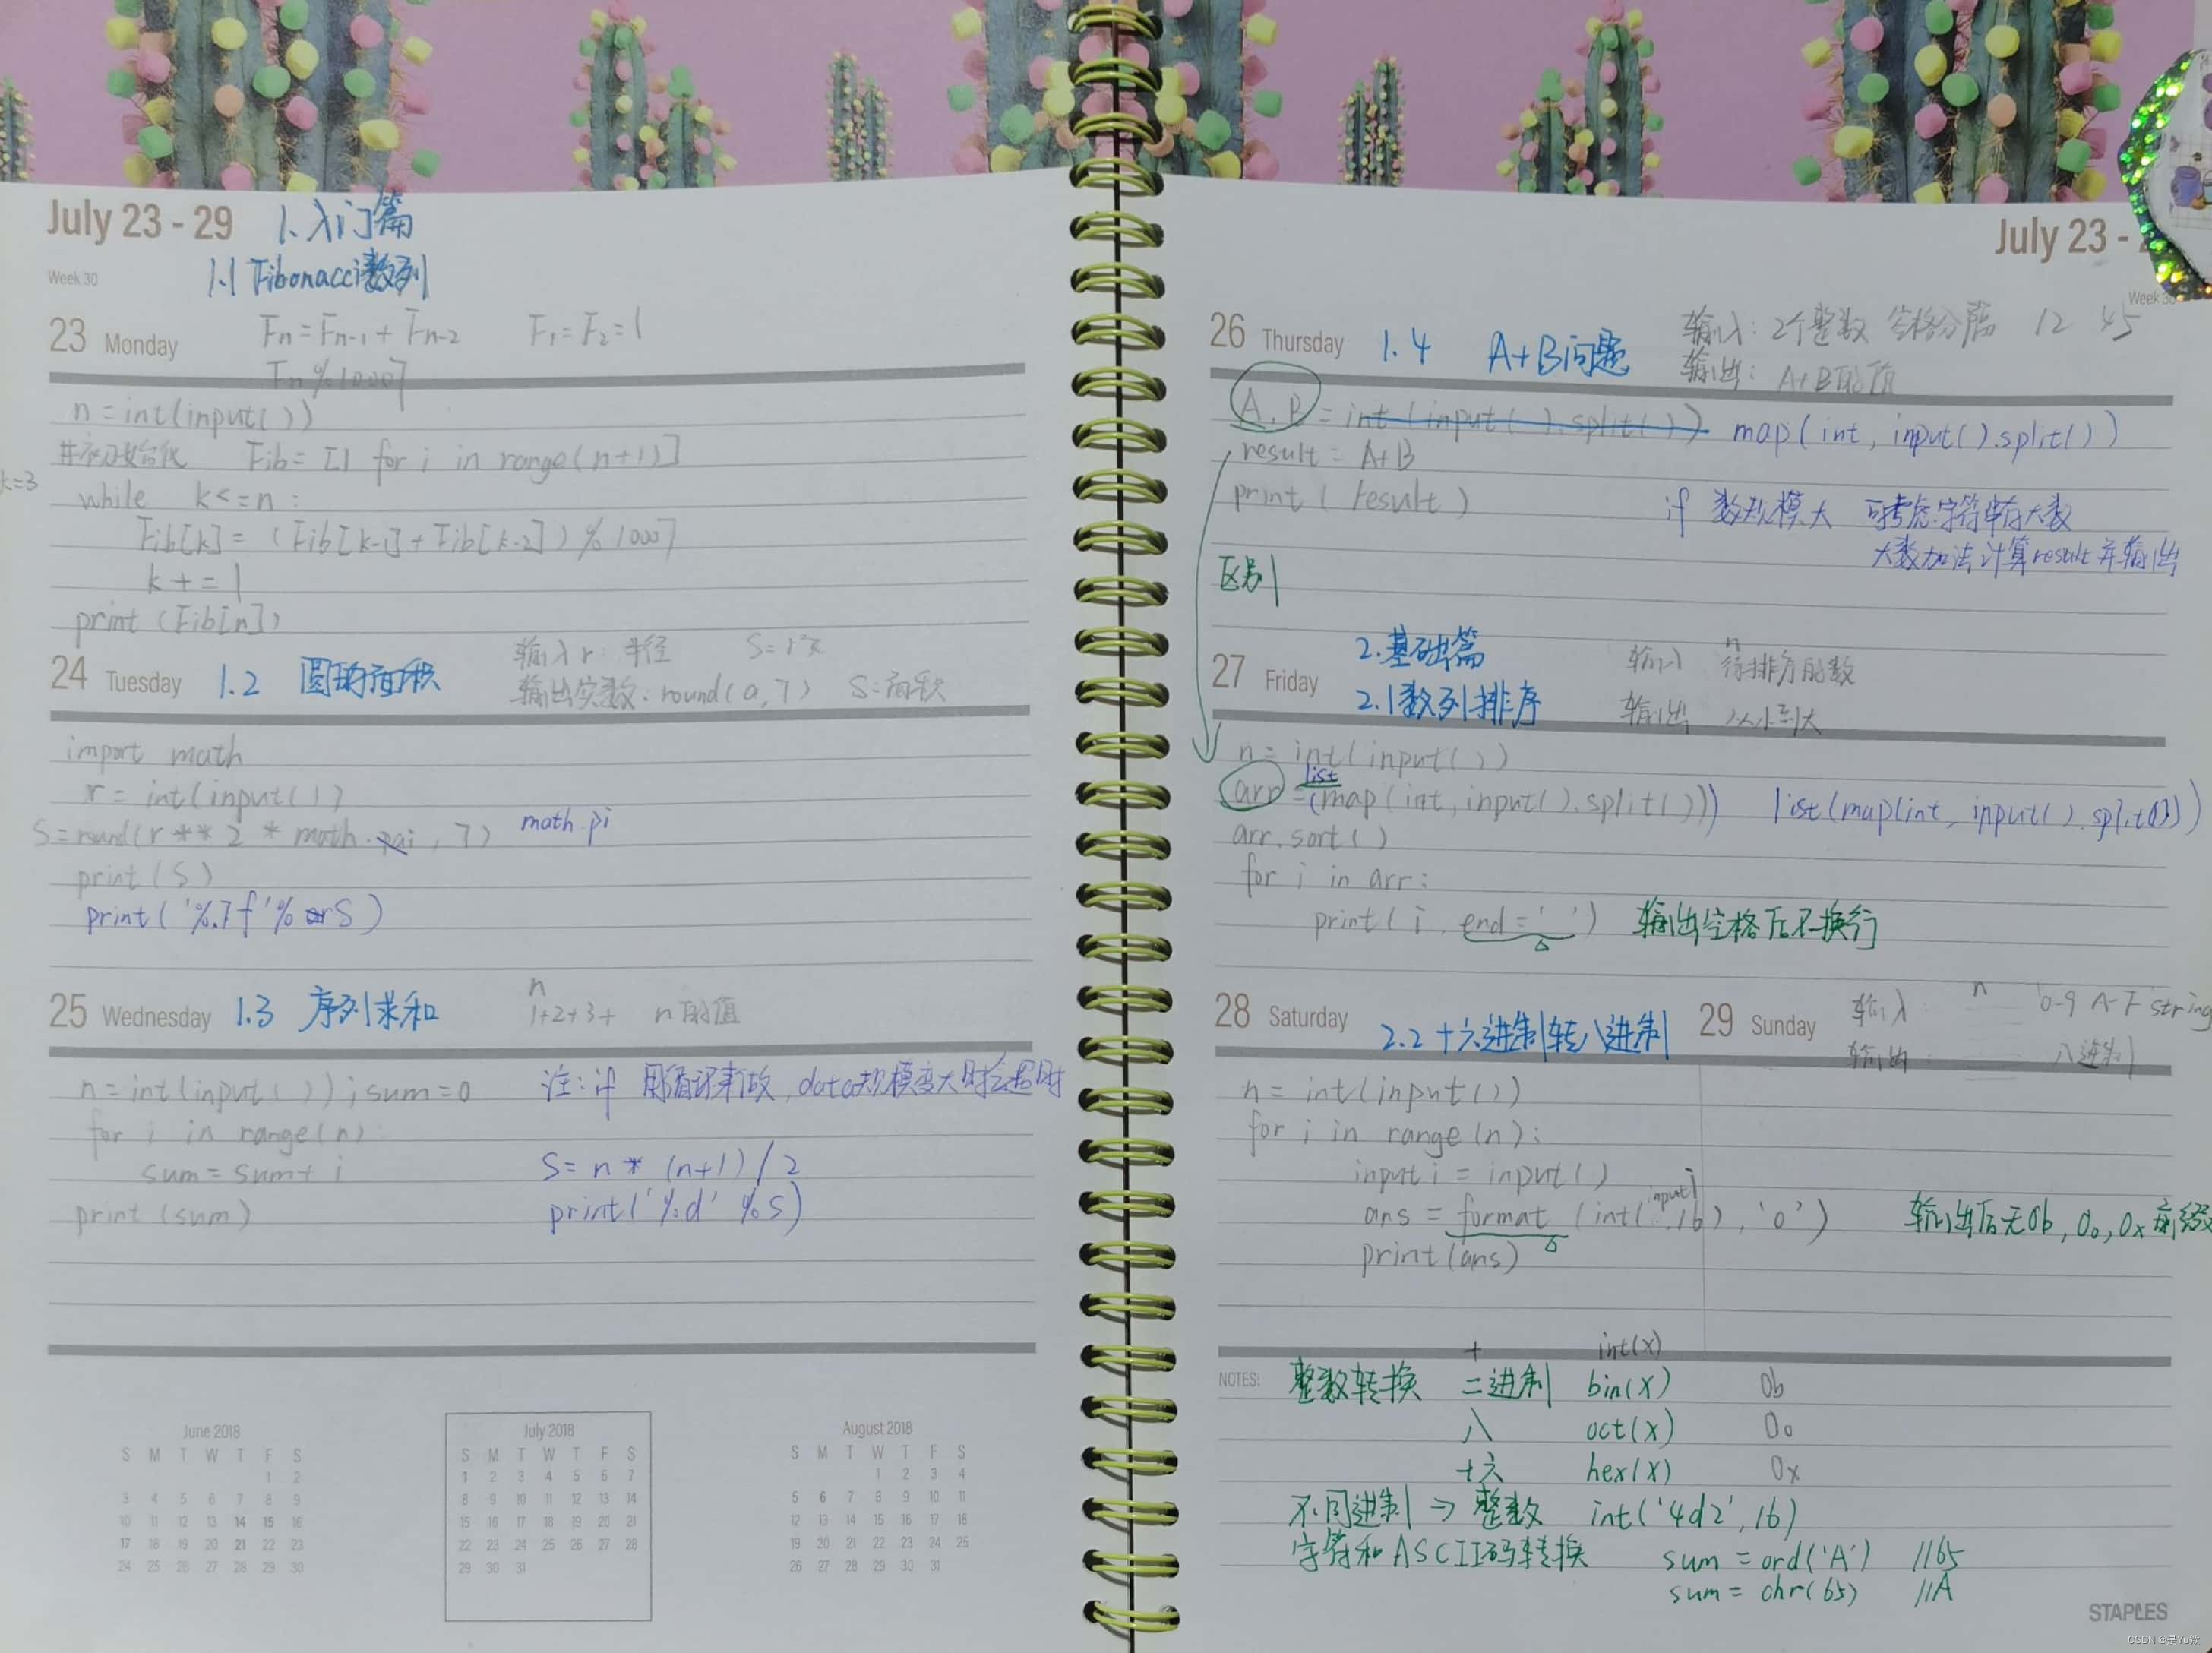 July 23 - 29 1.入门篇
Week 30 1.1 Fibonacci数列
23 Monday Fn=Fn-1+Fn-2 F1=F2=1
Fn%10007
n=int(input())
#初始化 Fib=[1 for i in range(n+1)]
k=3 while k<=n:
Fib[k]=(Fib[k-1]+Fib[k-2])%10007
k+=1
print(Fib[n])
24 Tuesday 1.2 圆的面积
输入r:半径 S=r²π
输出实数:round(0,7) S=面积
import math
r=int(input())
S=round(r**2*math.pai,7) math.pi
print(S)
print('%.7f'%S)
25 Wednesday 1.3 序列求和
n
1+2+3+ n的值
n=int(input());sum=0 注:if 用循环来做,data规模变大时会超时
for i in range(n)
sum=sum+i S=n*(n+1)/2
print(sum) print('%d'%S)
June 2018
S M T W T F S
1 2
3 4 5 6 7 8 9
10 11 12 13 14 15 16
17 18 19 20 21 22 23
24 25 26 27 28 29 30
July 2018
S M T W T F S
1 2 3 4 5 6 7
8 9 10 11 12 13 14
15 16 17 18 19 20 21
22 23 24 25 26 27 28
29 30 31
August 2018
S M T W T F S
1 2 3 4
5 6 7 8 9 10 11
12 13 14 15 16 17 18
19 20 21 22 23 24 25
26 27 28 29 30 31
July 23 -
Week 30
26 Thursday 1.4 A+B问题
输入:2个整数 空格分隔 12 45
输出:A+B的值
A,B=int(input().split()) map(int,input().split())
result=A+B
print(result) if 数规模大 可考虑字符串存大数
大数加法计算result并输出
区别
2.基础篇
27 Friday 2.1数列排序
输入 n 待排序的数
输出 从小到大
n=int(input())
arr=list(map(int,input().split())) list(map(int,input().split()))
arr.sort()
for i in arr:
print(i,end=' ') 输出空格后不换行
28 Saturday 2.2十六进制转八进制 29 Sunday
输入: n 0-9 A-F string
输出: 八进制
n=int(input())
for i in range(n):
inputi=input()
ans=format(int(inputi,16),'o') 输出后无0b,0o,0x前缀
print(ans)
十 int(x)
NOTES: 整数转换 二进制 bin(x) 0b
八 oct(x) 0o
十六 hex(x) 0x
不同进制→整数 int('4d2',16)
字符和ASCII码转换 sum=ord('A') //65
sum=chr(65) //A
STAPLES
CSDN @是Yu欸